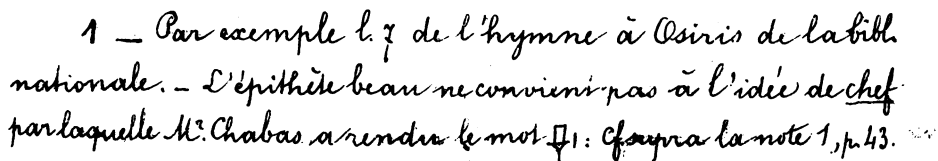 1 _ Par exemple l. 7 de l'hymne à Osiris de la bibl.
nationale. - L'épithète beau ne convient pas à l'idée de chef
par laquelle Mr. Chabas a rendu le mot : Cf supra la note 1, p. 43.